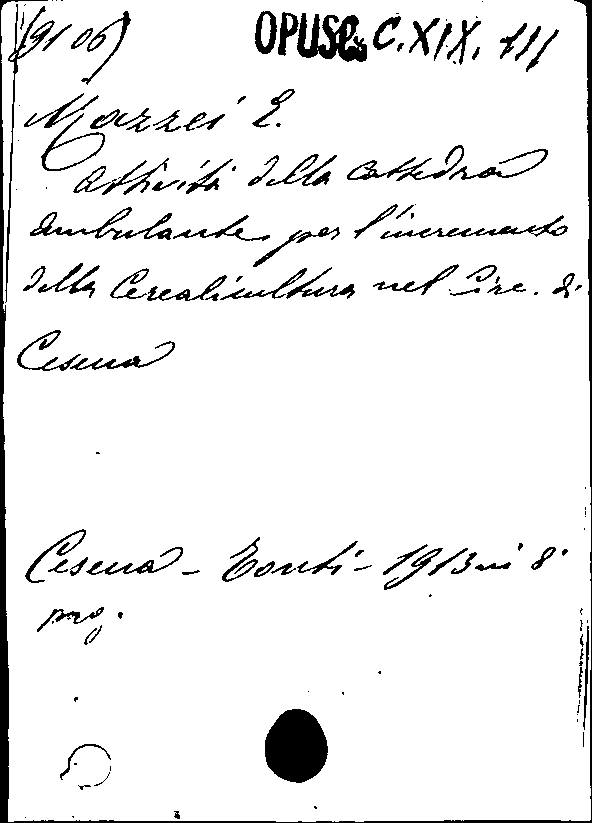 (9106) OPUSC. C. XIX. 111
Mazzei E.
attività della Cattedra
ambulante per l'incremento
della Cerealicultura nel Circ. di
Cesena
Cesena - Tonti - 1913 in 8°
pag.